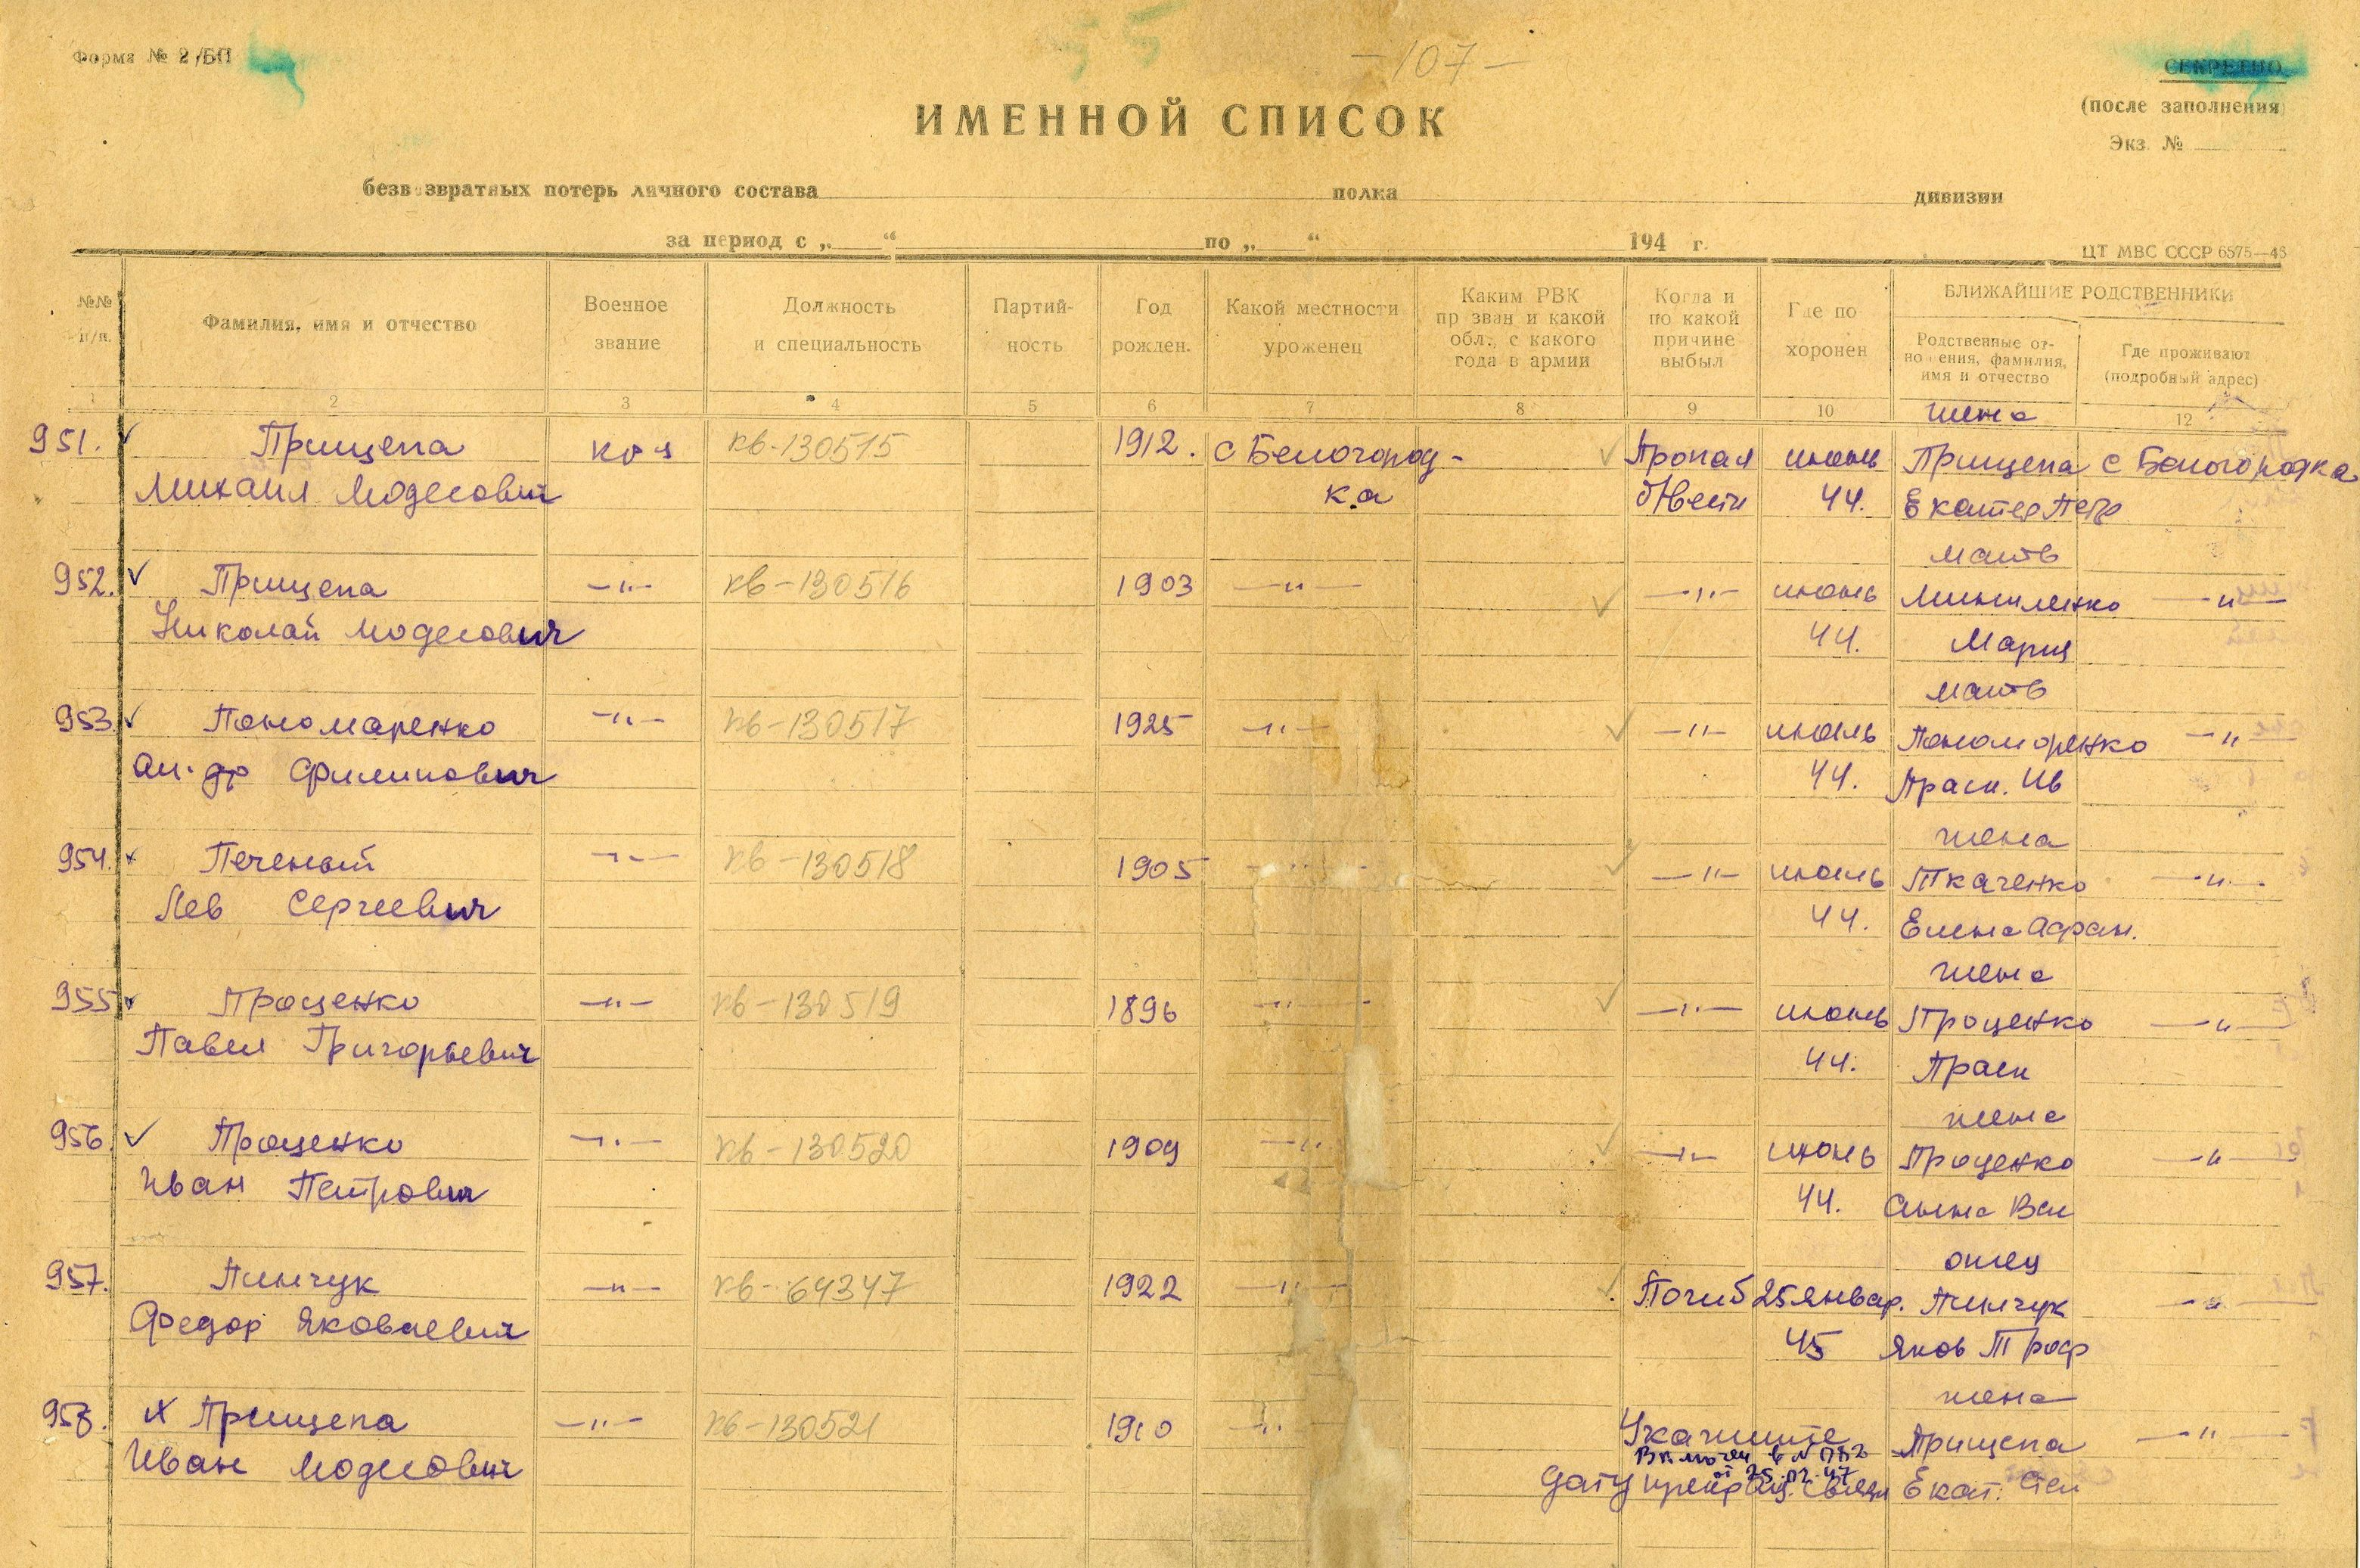 Форма № 2/БП
-107-
СЕКРЕТНО
(после заполнения)
Экз. №
ИМЕННОЙ СПИСОК
безвозвратных потерь личного состава полка дивизии
за период с „ “ по „ “ 194 г.
ЦТ МВС СССР 6575—46
№№ п/п.
Фамилия, имя и отчество
Военное звание
Должность и специальность
Партий- ность
Год рожден.
Какой местности уроженец
Каким РВК призван и какой обл., с какого года в армии
Когда и по какой причине выбыл
Где по- хоронен
БЛИЖАЙШИЕ РОДСТВЕННИКИ
Родственные от- ношения, фамилия, имя и отчество
Где проживают (подробный адрес)
1 2 3 4 5 6 7 8 9 10 12
жена
951. Прищепа кр-ц кв-130515 1912. с Белогород- Пропал июнь Прищепа с Белогородка
Михаил Модесович ка б/вести 44. Екатер Петр
мать
952. Прищепа —"— кв-130516 1903 —"— —"— июнь Мишиленко —"—
Николай Модесович 44. Мария
мать
953. Пономаренко —"— кв-130517 1925 —"— —"— июль Пономоренко —"—
Ал-др Филипович 44. Праск. Ив
жена
954. Печеный —"— кв-130518 1905 —"— —"— июль Ткаченко —"—
Лев Сергеевич 44. Елена Афан.
жена
955 Проценко —"— кв-130519 1896 —"— —"— июнь Проценко —"—
Павел Григорьевич 44. Праск
жена
956. Проценко —"— кв-130520 1909 —"— —"— июнь Проценко —"—
Иван Петрович 44. Анна Вас
отец
957. Пинчук —"— кв-64347 1922 —"— Погиб 25 январ. Пинчук —"—
Федор Яковлевич 45 Яков Троф
жена
958. Прищепа —"— кв-130521 1910 —"— Укажите Прищепа —"—
Включен в №
от 25.02.47
Иван Модесович дату прекращ. связи Екат. Степ